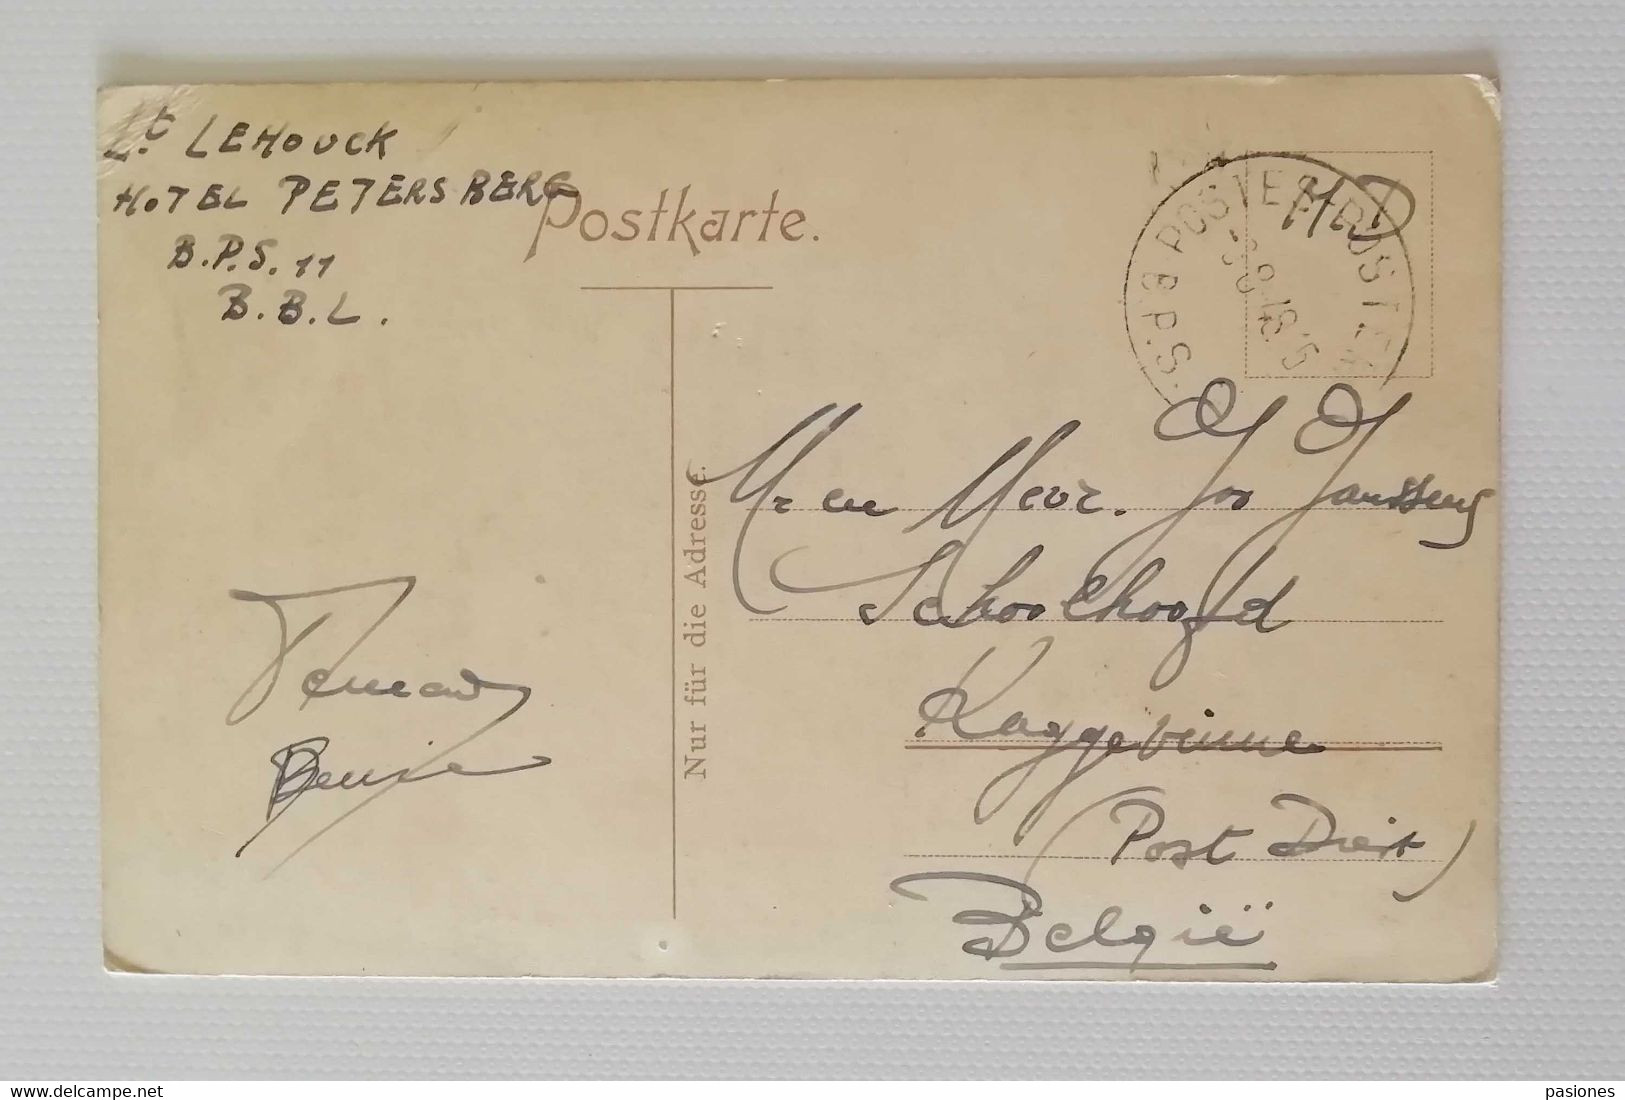 Lt LEHOUCK
HOTEL PETERSBERG
B.P.S. 11
B.B.L.
Postkarte.
POSTES-POSTERIJ
B.P.S.
Nur für die Adresse.
Mr en Mevr. Jos Janssens
Schoolhoofd
Kaggevinne
(Post Diest)
België
pasiones